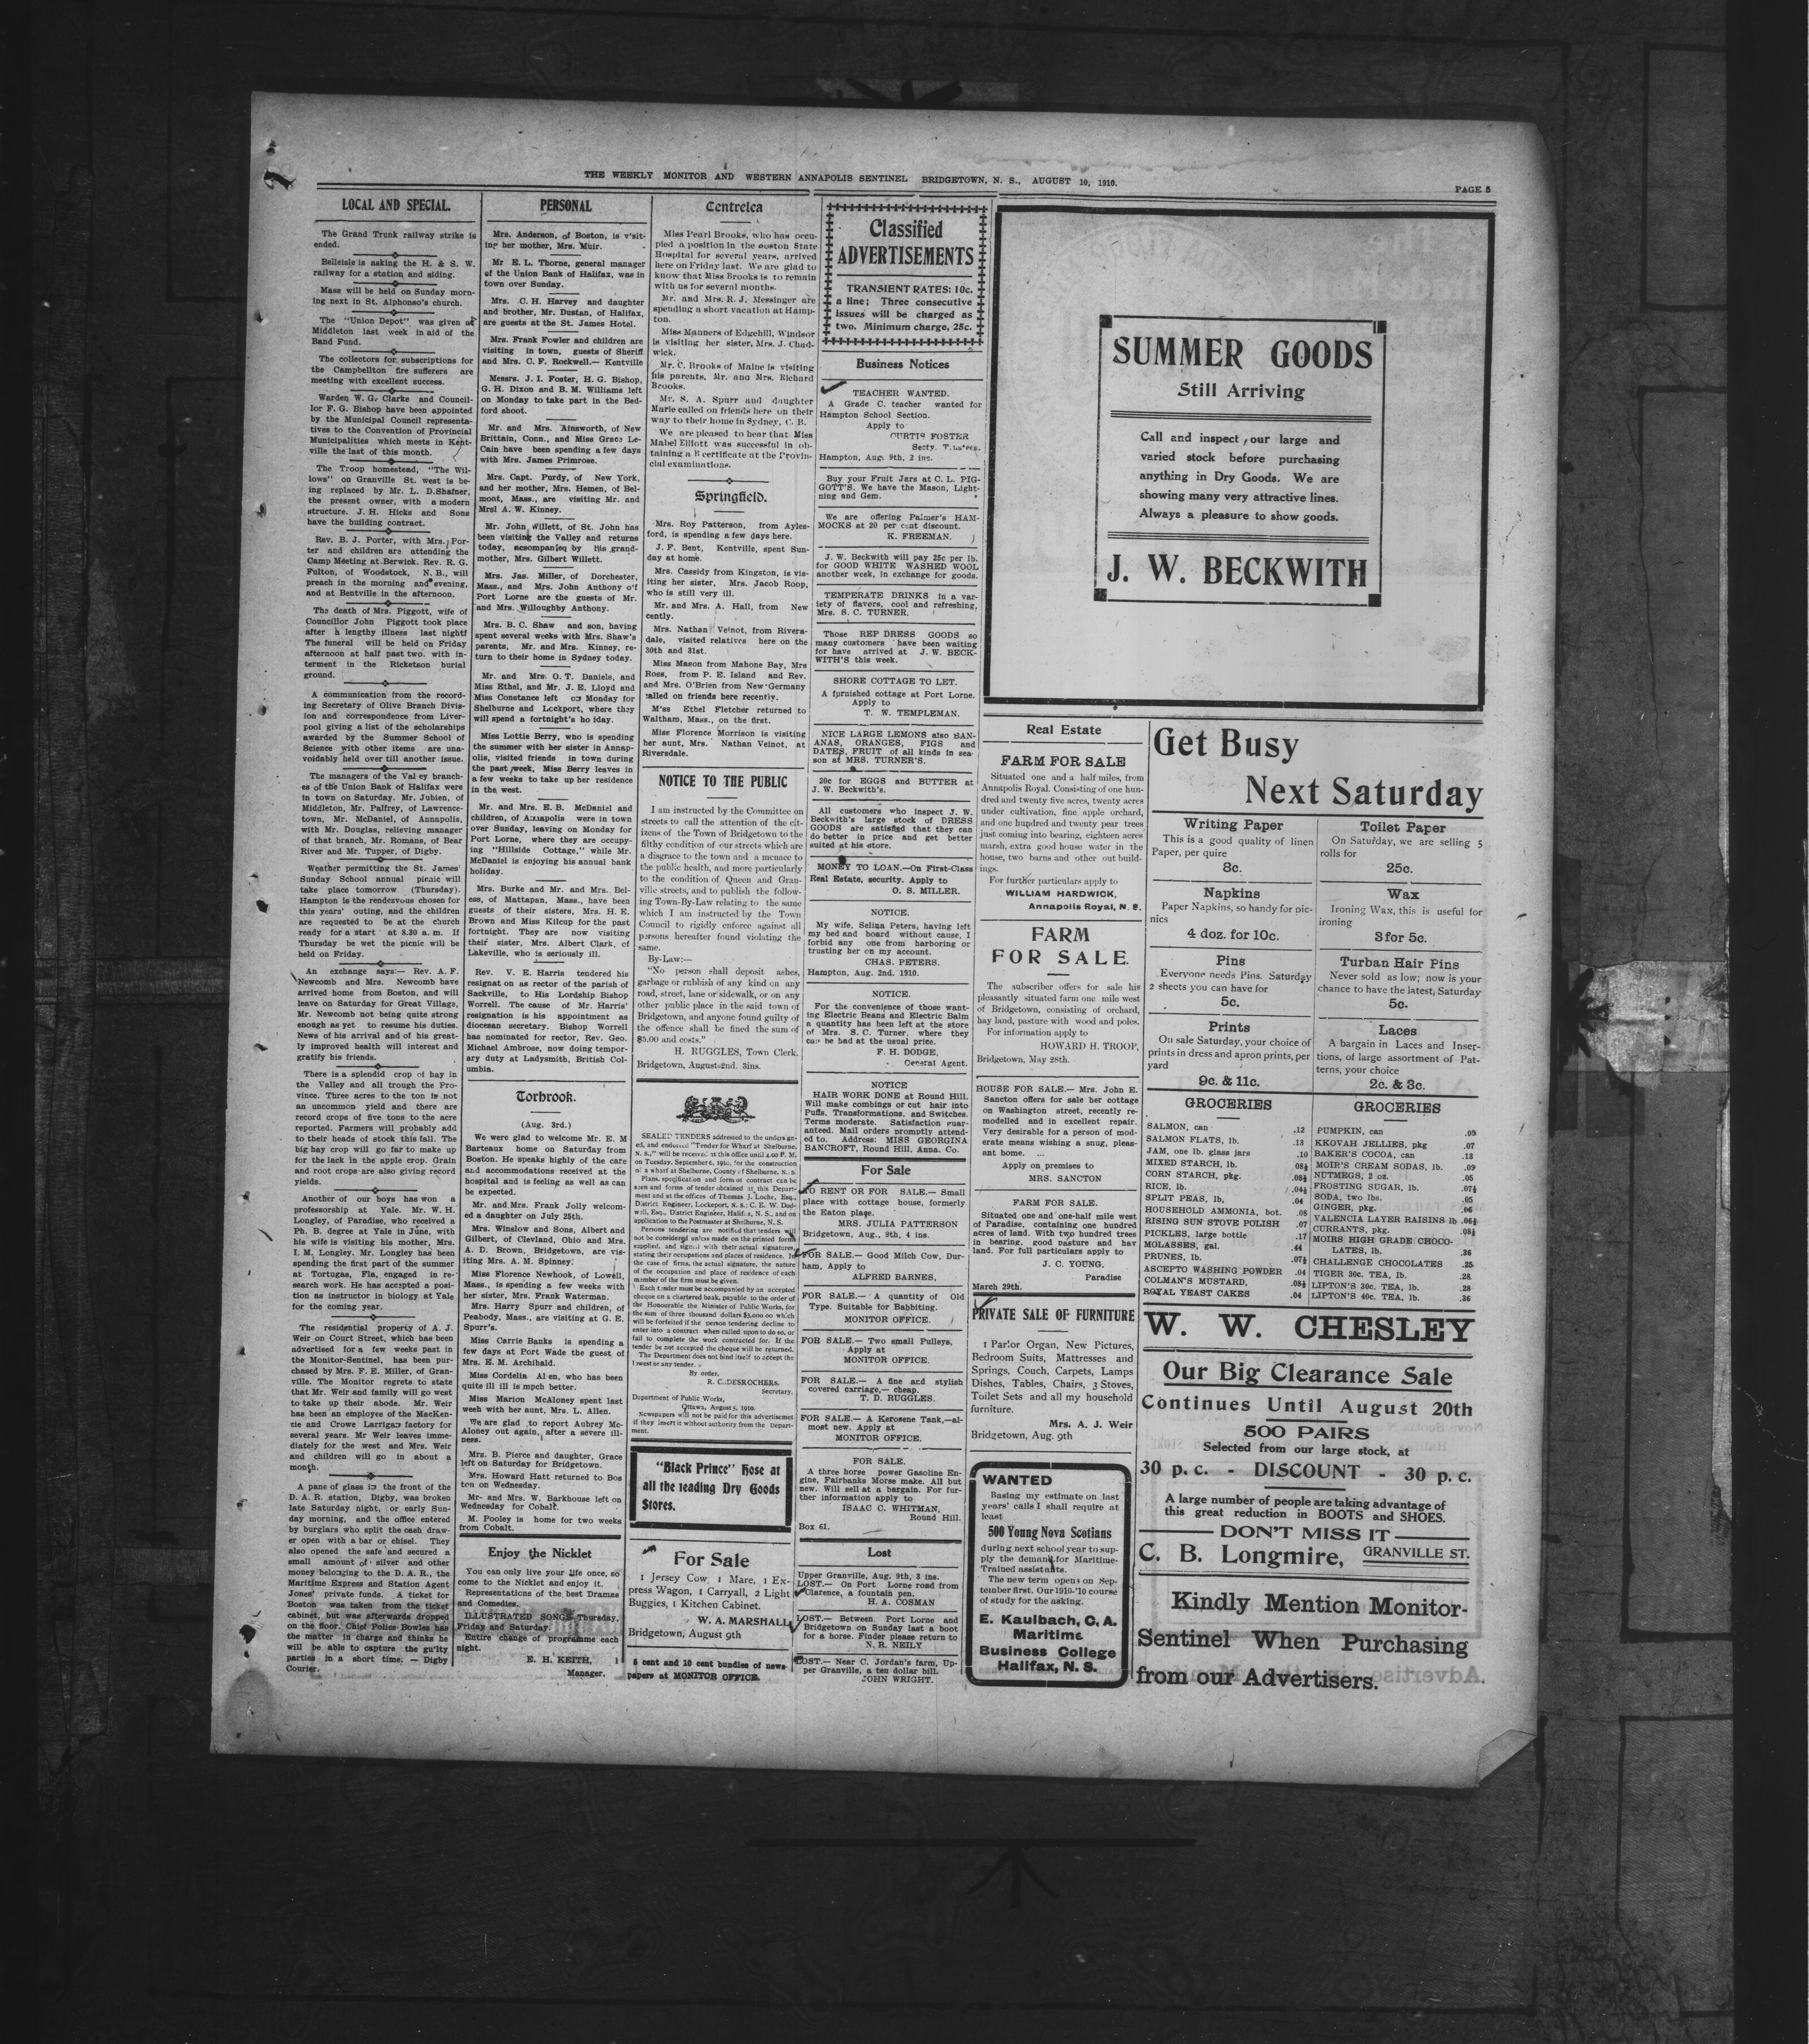 THE WEEKLY MONITOR AND WESTERN ANNAPOLIS SENTINEL BRIDGETOWN, N. S., AUGUST 10, 1910.
PAGE 5
LOCAL AND SPECIAL.
The Grand Trunk railway strike is
ended.
Belleisle is asking the H. & S. W.
railway for a station and siding.
Mass will be held on Sunday morn-
ing next in St. Alphonso's church.
The "Union Depot" was given at
Middleton last week in aid of the
Band Fund.
The collectors for subscriptions for
the Campbellton fire sufferers are
meeting with excellent success.
Warden W. G. Clarke and Council-
lor F. G. Bishop have been appointed
by the Municipal Council representa-
tives to the Convention of Provincial
Municipalities which meets in Kent-
ville the last of this month.
The Troop homestead, "The Wil-
lows" on Granville St. west is be-
ing replaced by Mr. L. D. Shafner,
the present owner, with a modern
structure. J. H. Hicks and Sons
have the building contract.
Rev. B. J. Porter, with Mrs. Por-
ter and children are attending the
Camp Meeting at Berwick. Rev. R. G.
Fulton, of Woodstock, N. B., will
preach in the morning and evening,
and at Bentville in the afternoon.
The death of Mrs. Piggott, wife of
Councillor John Piggott took place
after a lengthy illness last night!
The funeral will be held on Friday
afternoon at half past two. with in-
terment in the Ricketson burial
ground.
A communication from the record-
ing Secretary of Olive Branch Divis-
ion and correspondence from Liver-
pool giving a list of the scholarships
awarded by the Summer School of
Science with other items are una-
voidably held over till another issue.
The managers of the Val ey branch-
es of the Union Bank of Halifax were
in town on Saturday. Mr. Jubien, of
Middleton, Mr. Palfrey, of Lawrence-
town, Mr. McDaniel, of Annapolis,
with Mr. Douglas, relieving manager
of that branch, Mr. Romans, of Bear
River and Mr. Tupper, of Digby.
Weather permitting the St. James'
Sunday School annual picnic will
take place tomorrow (Thursday).
Hampton is the rendezvous chosen for
this years' outing, and the children
are requested to be at the church
ready for a start at 8.30 a. m. If
Thursday be wet the picnic will be
held on Friday.
An exchange says:— Rev. A. F.
Newcomb and Mrs. Newcomb have
arrived home from Boston, and will
leave on Saturday for Great Village,
Mr. Newcomb not being quite strong
enough as yet to resume his duties.
News of his arrival and of his great-
ly improved health will interest and
gratify his friends.
There is a splendid crop of hay in
the Valley and all trough the Pro-
vince. Three acres to the ton is not
an uncommon yield and there are
record crops of five tons to the acre
reported. Farmers will probably add
to their heads of stock this fall. The
big hay crop will go far to make up
for the lack in the apple crop. Grain
and root crops are also giving record
yields.
Another of our boys has won a
professorship at Yale. Mr. W. H.
Longley, of Paradise, who received a
Ph. B. degree at Yale in June, with
his wife is visiting his mother, Mrs.
I. M. Longley. Mr. Longley has been
spending the first part of the summer
at Tortugas, Fla, engaged in re-
search work. He has accepted a posi-
tion as instructor in biology at Yale
for the coming year.
The residential property of A. J.
Weir on Court Street, which has been
advertised for a few weeks past in
the Monitor-Sentinel, has been pur-
chased by Mrs. F. E. Miller, of Gran-
ville. The Monitor regrets to state
that Mr. Weir and family will go west
to take up their abode. Mr. Weir
has been an employee of the MacKen-
zie and Crowe Larrigan factory for
several years. Mr Weir leaves imme-
diately for the west and Mrs. Weir
and children will go in about a
month.
A pane of glass in the front of the
D. A. R. station, Digby, was broken
late Saturday night, or early Sun-
day morning, and the office entered
by burglars who split the cash draw-
er open with a bar or chisel. They
also opened the safe and secured a
small amount of silver and other
money belonging to the D. A. R., the
Maritime Express and Station Agent
Jones' private funds. A ticket for
Boston was taken from the ticket
cabinet, but was afterwards dropped
on the floor. Chief Police Bowles has
the matter in charge and thinks he
will be able to capture the gu'lty
parties in a short time. — Digby
Courier.
PERSONAL
Mrs. Anderson, of Boston, is v'sit-
ing her mother, Mrs. Muir.
Mr E. L. Thorne, general manager
of the Union Bank of Halifax, was in
town over Sunday.
Mrs. C. H. Harvey and daughter
and brother, Mr. Dustan, of Halifax,
are guests at the St. James Hotel.
Mrs. Frank Fowler and children are
visiting in town, guests of Sheriff
and Mrs. C. F. Rockwell.— Kentville
Messrs. J. I. Foster, H. G. Bishop,
G. H. Dixon and B. M. Williams left
on Monday to take part in the Bed-
ford shoot.
Mr. and Mrs. Ainsworth, of New
Brittain, Conn., and Miss Grace Le-
Cain have been spending a few days
with Mrs. James Primrose.
Mrs. Capt. Purdy, of New York,
and her mother, Mrs. Hemen, of Bel-
mont, Mass., are visiting Mr. and
Mrsl A. W. Kinney.
Mr. John Willett, of St. John has
been visiting the Valley and returns
today, acsompanieq by his grand-
mother, Mrs. Gilbert Willett.
Mrs. Jas. Miller, of Dorchester,
Mass., and Mrs. John Anthony o'f
Port Lorne are the guests of Mr.
and Mrs. Willoughby Anthony.
Mrs. B. C. Shaw and son, having
spent several weeks with Mrs. Shaw's
parents, Mr. and Mrs. Kinney, re-
turn to their home in Sydney today.
Mr. and Mrs. O. T. Daniels, and
Miss Ethel, and Mr. J. E. Lloyd and
Miss Constance left on Monday for
Shelburne and Lockport, where they
will spend a fortnight's ho iday.
Miss Lottie Berry, who is spending
the summer with her sister in Annap-
olis, visited friends in town during
the past week, Miss Berry leaves in
a few weeks to take up her residence
in the west.
Mr. and Mrs. E. B. McDaniel and
children, of Annapolis were in town
over Sunday, leaving on Monday for
Port Lorne, where they are occupy-
ing "Hillside Cottage," while Mr.
McDaniel is enjoying his annual bank
holiday.
Mrs. Burke and Mr. and Mrs. Bel-
ess, of Mattapan, Mass., have been
guests of their sisters, Mrs. H. E.
Brown and Miss Kilcup for the past
fortnight. They are now visiting
their sister, Mrs. Albert Clark, of
Lakeville, who is seriously ill.
Rev. V. E. Harris tendered his
resignat on as rector of the parish of
Sackville, to His Lordship Bishop
Worrell. The cause of Mr. Harris'
resignation is his appointment as
diocesan secretary. Bishop Worrell
has nominated for rector, Rev. Geo.
Michael Ambrose, now doing tempor-
ary duty at Ladysmith, British Col-
umbia.
Torbrook.
(Aug. 3rd.)
We were glad to welcome Mr. E. M
Barteaux home on Saturday from
Boston. He speaks highly of the care
and accommodations received at the
hospital and is feeling as well as can
be expected.
Mr. and Mrs. Frank Jolly welcom-
ed a daughter on July 25th.
Mrs. Winslow and Sons, Albert and
Gilbert, of Clevland, Ohio and Mrs.
A. D. Brown, Bridgetown, are vis-
iting Mrs. A. M. Spinney.
Miss Florence Newhook, of Lowell,
Mass., is spending a few weeks with
her sister, Mrs. Frank Waterman.
Mrs. Harry Spurr and children, of
Peabody, Mass., are visiting at G. E.
Spurr's.
Miss Carrie Banks is spending a
few days at Port Wade the guest of
Mrs. E. M. Archibald.
Miss Cordelia Al en, who has been
quite ill ill is mpch better.
Miss Marion McAloney spent last
weeh with her aunt, Mrs. L. Allen.
We are glad to report Aubrey Mc-
Aloney out again, after a severe ill-
ness.
Mrs. B. Pierce and daughter, Grace
left on Saturday for Bridgetown.
Mrs. Howard Hatt returned to Bos
ton on Wednesday.
Mr- and Mrs. W. Barkhouse left on
Wednesday for Cobalt.
M. Pooley is home for two weeks
from Cobalt.
Enjoy the Nicklet
You can only live your life once, so
come to the Nicklet and enjoy it.
Representations of the best Dramas
and Comedies.
ILLUSTRATED SONGS Thursday,
Friday and Saturday.
Entire change of programme each
night.
E. H. KEITH,
Manager.
Centrelea
Miss Pearl Brooks, who has occu-
pied a position in the Boston State
Hospital for several years, arrived
here on Friday last. We are glad to
know that Miss Brooks is to remain
with us for several months.
Mr. and Mrs. R. J. Messinger are
spending a short vacation at Hamp-
ton.
Miss Manners of Edgehill, Windsor
is visiting her sister, Mrs. J. Chad-
wick.
Mr. C. Brooks of Maine is visiting
his parents, Mr. and Mrs. Richard
Brooks.
Mr. S. A. Spurr and daughter
Marie called on friends here on their
way to their home in Sydney, C. B.
We are pleased to hear that Miss
Mabel Elliott was successful in ob-
taining a B certificate at the Provin-
cial examinations.
Springfield.
Mrs. Roy Patterson, from Ayles-
ford, is spending a few days here.
J. F. Bent, Kentville, spent Sun-
day at home.
Mrs. Cassidy from Kingston, is vis-
iting her sister, Mrs. Jacob Roop,
who is still very ill.
Mr. and Mrs. A. Hall, from New
cently.
Mrs. Nathan Veinot, from Rivers-
dale, visited relatives here on the
30th and 31st.
Miss Mason from Mahone Bay, Mrs
Ross, from P. E. Island and Rev.
and Mrs. O'Brien from New Germany
called on friends here recently.
M'ss Ethel Fletcher returned to
Waltham, Mass., on the first.
Miss Florence Morrison is visiting
her aunt, Mrs. Nathan Veinot, at
Riversdale.
NOTICE TO THE PUBLIC
I am instructed by the Committee on
streets to call the attention of the cit-
izens of the Town of Bridgetown to the
filthy condition of our streets which are
a disgrace to the town and a menace to
the public health, and more particularly
to the condition of Queen and Gran-
ville streets, and to publish the follow-
ing Town-By-Law relating to the same
which I am instructed by the Town
Council to rigidly enforce against all
persons hereafter found violating the
same.
By-Law:—
"No person shall deposit ashes,
garbage or rubbish of any kind on any
road, street, lane or sidewalk, or on any
other public place in the said town of
Bridgetown, and anyone found guilty of
the offence shall be fined the sum of
$5.00 and costs."
H. RUGGLES, Town Clerk.
Bridgetown, August 2nd. 3ins.
SEALED TENDERS addressed to the undersign-
ed, and endorsed "Tender for Wharf at Shelburne,
N. S.," will be received at this office until 4.00 P. M.
on Tuesday, September 6, 1910, for the construction
of a wharf at Shelburne, County of Shelburne, N. S.
Plans, specification and form of contract can be
seen and forms of tender obtained at this Depart-
ment and at the offices of Thomas J. Locke, Esq.,
District Engineer, Lockeport, N. S.; C. E. W. Dod-
well, Esq., District Engineer, Halifax, N. S., and on
application to the Postmaster at Shelburne, N. S.
Persons tendering are notified that tenders will
not be considered unless made on the printed forms
supplied, and signed with their actual signatures,
stating their occupations and places of residence. In
the case of firms, the actual signature, the nature
of the occupation and place of residence of each
member of the firm must be given.
Each tender must be accompanied by an accepted
cheque on a chartered bank, payable to the order of
the Honourable the Minister of Public Works, for
the sum of three thousand dollars $3,000.00 which
will be forfeited if the person tendering decline to
enter into a contract when called upon to do so, or
fail to complete the work contracted for. If the
tender be not accepted the cheque will be returned.
The Department does not bind itself to accept the
lowest or any tender.
By order,
R. C. DESROCHERS,
Secretary.
Department of Public Works,
Ottawa, August 5, 1910.
Newspapers will not be paid for this advertisemet
if they insert it without authority from the Depart-
ment.
"Black Prince" Hose at
all the leading Dry Goods
Stores.
For Sale
1 Jersey Cow, 1 Mare, 1 Ex-
press Wagon, 1 Carryall, 2 Light
Buggies, 1 Kitchen Cabinet.
W. A. MARSHALL
Bridgetown, August 9th
5 cent and 10 cent bundles of news
papers at MONITOR OFFICE.
Classified
ADVERTISEMENTS
TRANSIENT RATES: 10c.
a line; Three consecutive
issues will be charged as
two. Minimum charge, 25c.
Business Notices
TEACHER WANTED.
A Grade C. teacher wanted for
Hampton School Section.
Apply to
CURTIS FOSTER
Secty. Trustees.
Hampton, Aug. 9th, 2 ins.
Buy your Fruit Jars at C. L. PIG-
GOTT'S. We have the Mason, Light-
ning and Gem.
We are offering Palmer's HAM-
MOCKS at 20 per cent discount.
K. FREEMAN.
J. W. Beckwith will pay 25c per lb.
for GOOD WHITE WASHED WOOL
another week, in exchange for goods.
TEMPERATE DRINKS in a var-
iety of flavers, cool and refreshing,
Mrs. S. C. TURNER.
Those REP DRESS GOODS so
many customers have been waiting
for have arrived at J. W. BECK-
WITH'S this week.
SHORE COTTAGE TO LET.
A furnished cottage at Port Lorne.
Apply to
T. W. TEMPLEMAN.
NICE LARGE LEMONS also BAN-
ANAS, ORANGES, FIGS and
DATES, FRUIT of all kinds in sea-
son at MRS. TURNER'S.
20c for EGGS and BUTTER at
J. W. Beckwith's.
All customers who inspect J. W.
Beckwith's large stock of DRESS
GOODS are satisfied that they can
do better in price and get better
suited at his store.
MONEY TO LOAN.—On First-Class
Real Estate, security. Apply to
O. S. MILLER.
NOTICE.
My wife, Selina Peters, having left
my bed and board without cause, I
forbid any one from harboring or
trusting her on my account.
CHAS. PETERS.
Hampton, Aug. 2nd. 1910.
NOTICE.
For the convenience of those want-
ing Electric Beans and Electric Balm
a quantity has been left at the store
of Mrs. S. C. Turner, where they
can be had at the usual price.
F. H. DODGE,
General Agent.
NOTICE
HAIR WORK DONE at Round Hill.
Will make combings or cut hair into
Puffs, Transformations, and Switches.
Terms moderate. Satisfaction guar-
anteed. Mail orders promptly attend-
ed to. Address: MISS GEORGINA
BANCROFT, Round Hill, Anna. Co.
For Sale
TO RENT OR FOR SALE.— Small
place with cottage house, formerly
the Eaton place.
MRS. JULIA PATTERSON
Bridgetown, Aug., 9th, 4 ins.
FOR SALE.— Good Milch Cow, Dur-
ham, Apply to
ALFRED BARNES,
FOR SALE.— A quantity of Old
Type. Suitable for Babbiting.
MONITOR OFFICE.
FOR SALE.— Two small Pulleys,
Apply at
MONITOR OFFICE.
FOR SALE.— A fine and stylish
covered carriage,— cheap.
T. D. RUGGLES.
FOR SALE.— A Kerosene Tank,—al-
most new. Apply at
MONITOR OFFICE.
FOR SALE.
A three horse power Gasoline En-
gine, Fairbanks Morse make. All but
new. Will sell at a bargain. For fur-
ther information apply to
ISAAC C. WHITMAN,
Round Hill.
Box 61.
Lost
Upper Granville, Aug. 9th, 3 ins.
LOST.— On Port Lorne road from
Clarence, a fountain pen.
H. A. COSMAN
LOST.— Between Port Lorne and
Bridgetown on Sunday last a boot
for a horse. Finder please return to
N. R. NEILY
LOST.— Near C. Jordan's farm, Up-
per Granville, a ten dollar bill.
JOHN WRIGHT.
SUMMER GOODS
Still Arriving
Call and inspect our large and
varied stock before purchasing
anything in Dry Goods. We are
showing many very attractive lines.
Always a pleasure to show goods.
J. W. BECKWITH
Real Estate
FARM FOR SALE
Situated one and a half miles, from
Annapolis Royal. Consisting of one hun-
dred and twenty five acres, twenty acres
under cultivation, fine apple orchard,
and one hundred and twenty pear trees
just coming into bearing, eighteen acres
marsh, extra good house water in the
house, two barns and other out build-
ings.
For further particulars apply to
WILLIAM HARDWICK,
Annapolis Royal, N. S.
FARM
FOR SALE
The subscriber offers for sale his
pleasantly situated farm one mile west
of Bridgetown, consisting of orchard,
hay land, pasture with wood and poles.
For information apply to
HOWARD H. TROOP,
Bridgetown, May 28th.
HOUSE FOR SALE.— Mrs. John E.
Sancton offers for sale her cottage
on Washington street, recently re-
modelled and in excellent repair.
Very desirable for a person of mod-
erate means wishing a snug, pleas-
ant home.
Apply on premises to
MRS. SANCTON
FARM FOR SALE.
Situated one and one-half mile west
of Paradise, containing one hundred
acres of land. With two hundred trees
in bearing, good pasture and hay
land. For full particulars apply to
J. C. YOUNG,
Paradise
March 29th.
PRIVATE SALE OF FURNITURE
1 Parlor Organ, New Pictures,
Bedroom Suits, Mattresses and
Springs, Couch, Carpets, Lamps
Dishes, Tables, Chairs, 3 Stoves,
Toilet Sets and all my household
furniture.
Mrs. A. J. Weir
Bridgetown, Aug. 9th
WANTED
Basing my estimate on last
years' calls I shall require at
least
500 Young Nova Scotians
during next school year to sup-
ply the demand for Maritime-
Trained assistants.
The new term opens on Sep-
tember first. Our 1910-'10 course
of study for the asking.
E. Kaulbach, C. A.
Maritime
Business College
Halifax, N. S.
Get Busy
Next Saturday
Writing Paper
This is a good quality of linen
Paper, per quire
8c.
Napkins
Paper Napkins, so handy for pic-
nics
4 doz. for 10c.
Pins
Everyone needs Pins. Saturday
2 sheets you can have for
5c.
Prints
On sale Saturday, your choice of
prints in dress and apron prints, per
yard
9c. & 11c.
Toilet Paper
On Saturday, we are selling 5
rolls for
25c.
Wax
Ironing Wax, this is useful for
ironing
3 for 5c.
Turban Hair Pins
Never sold as low; now is your
chance to have the latest, Saturday
5c.
Laces
A bargain in Laces and Inser-
tions, of large assortment of Pat-
terns, your choice
2c. & 3c.
GROCERIES
SALMON, can .12
SALMON FLATS, lb. .13
JAM, one lb. glass jars .10
MIXED STARCH, lb. 08½
CORN STARCH, pkg. .08½
RICE, lb. .04½
SPLIT PEAS, lb, .04
HOUSEHOLD AMMONIA, bot. .08
RISING SUN STOVE POLISH .07
PICKLES, large bottle .17
MOLASSES, gal. .44
PRUNES, lb. .07½
ASCEPTO WASHING POWDER .04
COLMAN'S MUSTARD, .08½
ROYAL YEAST CAKES .04
GROCERIES
PUMPKIN, can .09
KKOVAH JELLIES, pkg .07
BAKER'S COCOA, can .13
MOIR'S CREAM SODAS, lb. .09
NUTMEGS, 2 oz. .05
FROSTING SUGAR, lb. .07½
SODA, two lbs. .05
GINGER, pkg. .06
VALENCIA LAYER RAISINS lb .06½
CURRANTS, pkg. .08½
MOIRS HIGH GRADE CHOCO-
LATES, lb. .36
CHALLENGE CHOCOLATES .25
TIGER 30c. TEA, lb. .28
LIPTON'S 30c. TEA, lb. .28
LIPTON'S 40c. TEA, lb. .36
W. W. CHESLEY
Our Big Clearance Sale
Continues Until August 20th
500 PAIRS
Selected from our large stock, at
30 p. c. - DISCOUNT - 30 p. c.
A large number of people are taking advantage of
this great reduction in BOOTS and SHOES.
DON'T MISS IT
C. B. Longmire, GRANVILLE ST.
Kindly Mention Monitor-
Sentinel When Purchasing
from our Advertisers.